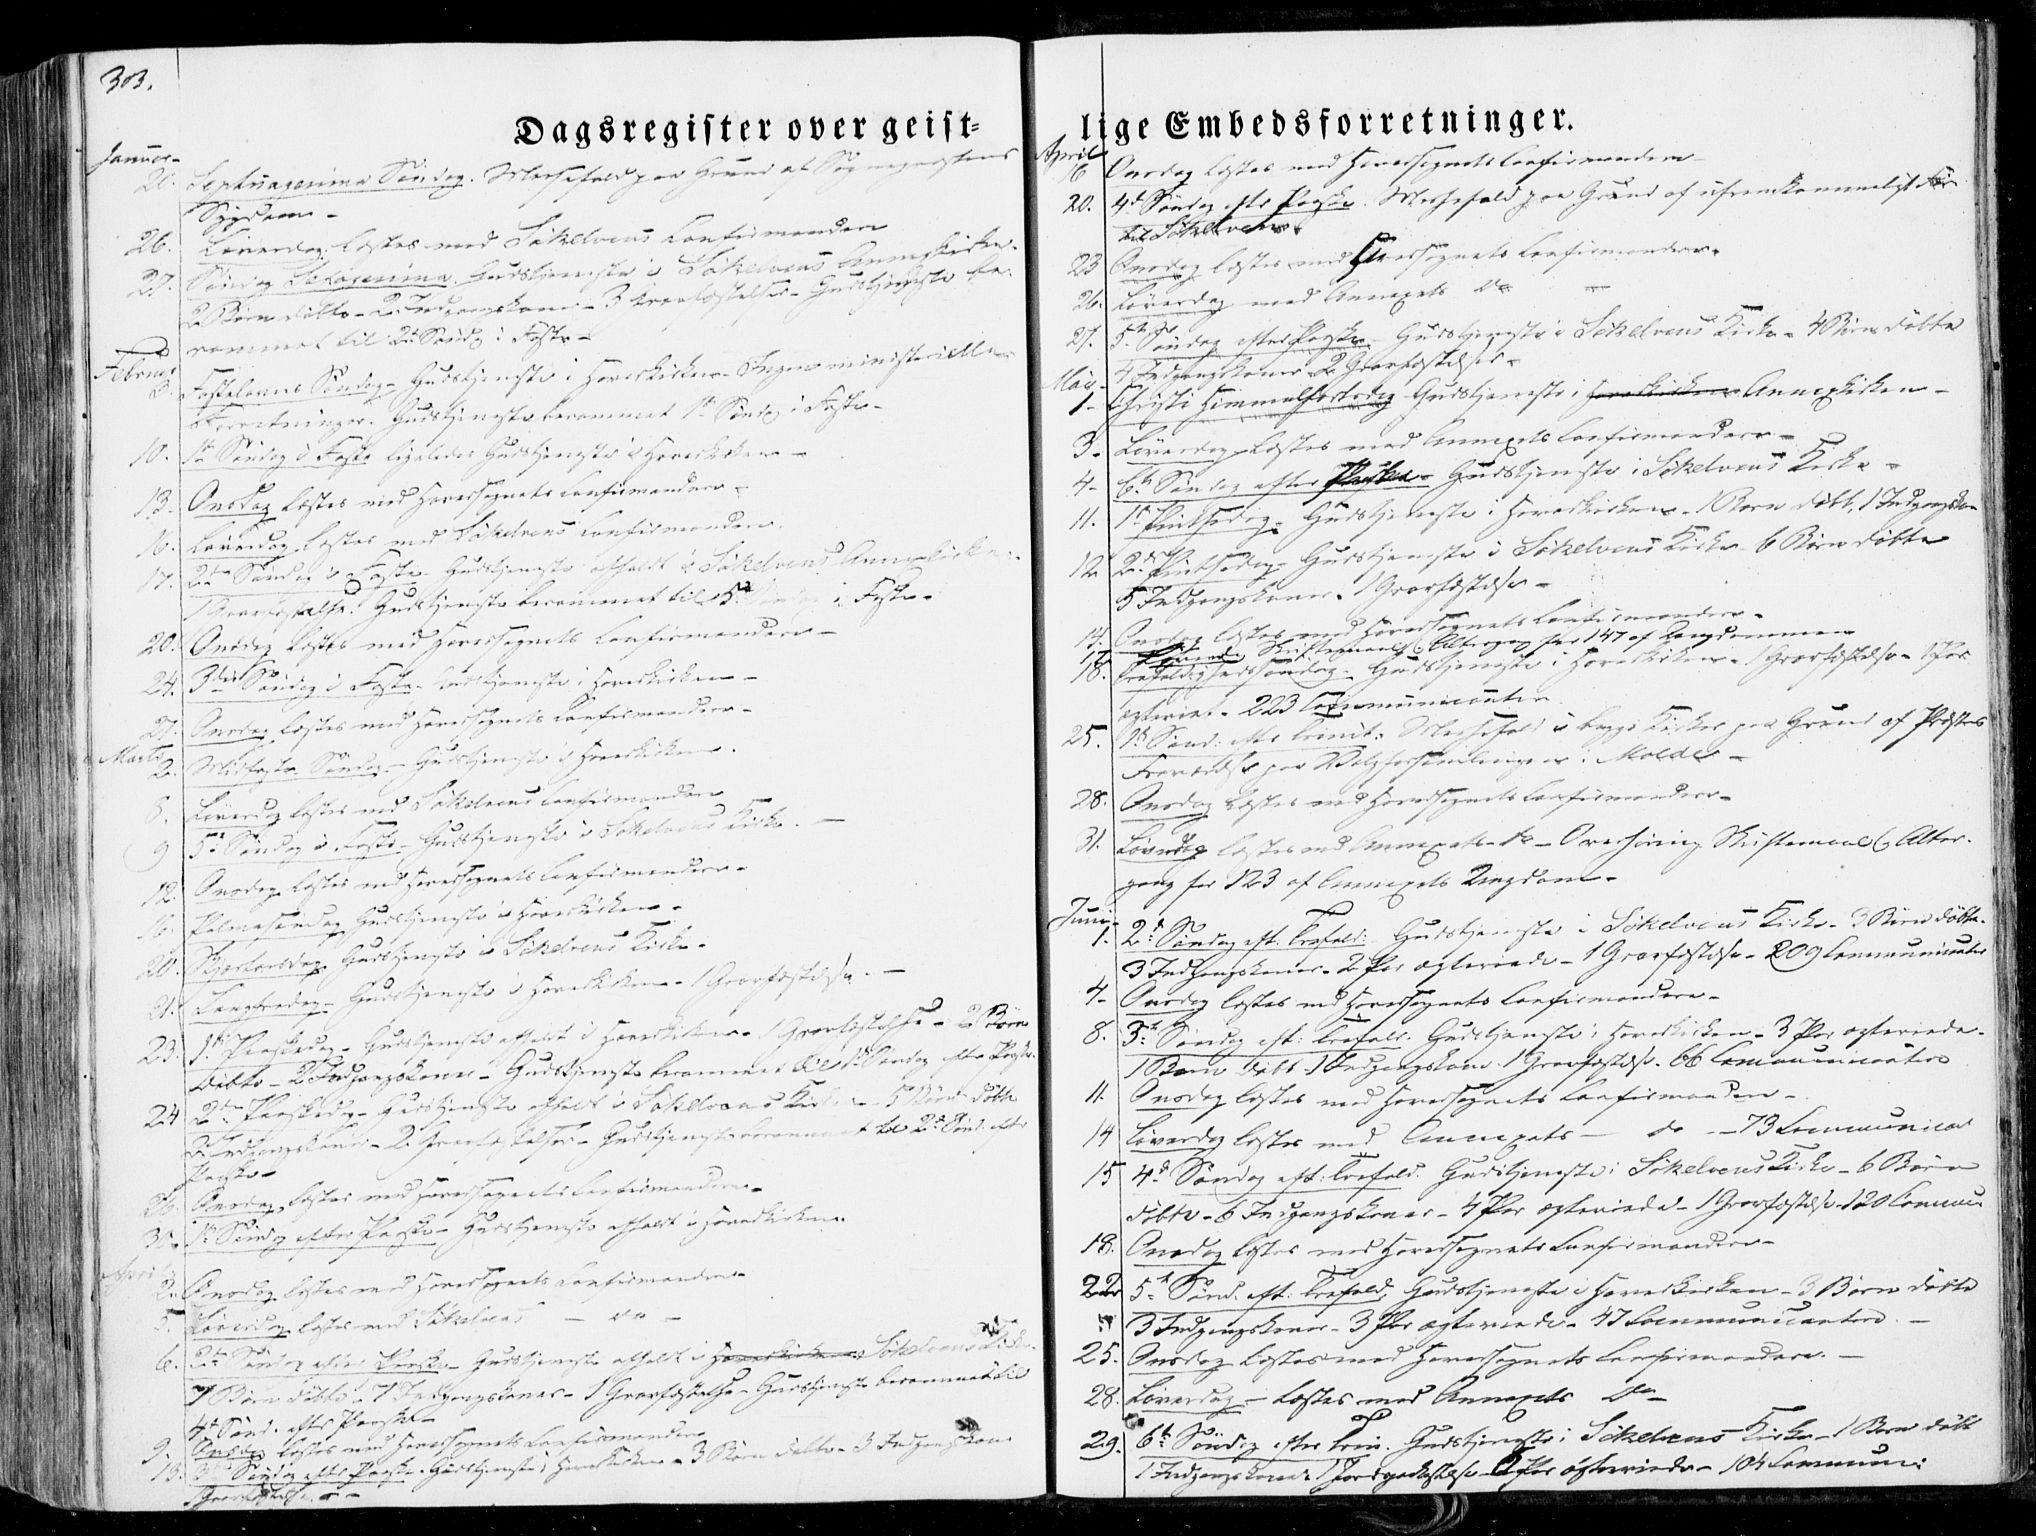 303.
Dagsregister over geist-
Januar
20. Septuagesima Søndag. Messefald paa Grund af Sognepræstens
Sygdom -
26. Løverdag læstes med Søkelvens Confirmander
27. Søndag Sexagesima. Gudstjeneste i Søkelvens Annexkirke.
2 Børn døbte - 2 Indgangskoner - 3 Gravfæstelser - Gudstjeneste be-
rammet til 2d Sønd. i Faste -
Februar
3. Fastelavns Søndag - Gudstjeneste i Hovedkirken - Ingen ministerielle
Forretninger. Gudstjeneste berammet 1st Sønd. i Faste -
10. 1st Søndag i Faste ligeledes Gudstjeneste i Hovedkirken -
13. Onsdag læstes med Hovedsognets Confirmander -
16. Løverdag læstes med Søkelvens Confirmander
17. 2den Søndag i Faste. Gudstjeneste afholdt i Søkelvens Annexkirke.
1 Gravfæstelse. Gudstjeneste berammet til 5te Søndag i Faste -
20. Onsdag læstes med Hovedsognets Confirmander -
24. 3die Søndag i Faste - Gudstjeneste i Hovedkirken -
27. Onsdag læstes med Hovedsognets Confirmander -
Marts
2. Midfaste Søndag - Gudstjeneste i Hovedkirken -
8. Løverdag læstes med Søkelvens Confirmander
9 5te Søndag i Faste - Gudstjeneste i Søkelvens Kirke. -
12. Onsdag læstes med Hovedsognets Confirmander -
16. Palmesøndag Gudstjeneste i Hovedkirken -
20. Skjærtorsdag Gudstjeneste i Søkelvens Kirke -
21. Langfredag - Gudstjeneste i Hovedkirken - 1 Gravfæstelse. -
23. 1ste Paaskedag - Gudstjeneste afholdt i Hovedkirken - 1 Gravfæstelse - 2 Børn
døbte - 2 Indgangskoner - Gudstjeneste berammet til 1st Søndag efter Paaske.
24 2den Paaskedag - Gudstjeneste afholdt i Søkelvens Kirke - 5 Børn døbte
Indgangskoner - 2 Gravfæstelser - Gudstjeneste berammet til 2d Sønd. efter
Paaske -
26. Onsdag læstes med Hovedsognets Confirmander -
30. 1st Søndag efter Paaske - Gudstjeneste afholdt i Hovedkirken.
April
2. Onsdag læstes med Hovedsognets Confirmander -
5. Løverdag læstes med Søkelvens - do -
6. 2den Søndag efter Paaske - Gudstjeneste afholdt i Hovedkirken Søkelvens Kirke
7 Børn døbte - 7 Indgangskoner - 1 Gravfæstelse - Gudstjeneste berammet til
4de Sønd. efter Paaske -
9. Onsdag læstes med Hovedsognets Confirmander
13. Søndag efter Paaske - Gudstjeneste i Hovedkirken - 3 Børn døbte - 3 Indgangskoner
1 Gravfæstelse -
lige Embedsforretninger.
April
16 Onsdag læstes med Hovedsognets Confirmander -
20. 4de Søndag efter Paaske. Messefald paa Grund af ufremkommeligt Føre
til Søkelven.
23 Onsdag læstes med Hovedsognets Confirmander -
26. Løverdag med Annexets do -
27. 5te Søndag efter Paaske - Gudstjeneste i Søkelvens Kirke - 4 Børn døbte
4 Indgangskoner - 2 Gravfæstelser -
Mai
1 - Christi Himmelfartsdag Gudstjeneste i Hovedkirken Annexkirken -
3 - Løverdag læstes med Annexets Confirmander -
4 - 6te Søndag efter Paaske - Gudstjeneste i Søkelvens Kirke -
11. 1st Pintsedag - Gudstjeneste i Hovedkirken - 1 Barn døbt, 1 Indgangskone
12 2den Pintsedag - Gudstjeneste i Søkelvens Kirke - 6 Børn døbte
5 Indgangskoner - 1 Gravfæstelse -
14. Onsdag læstes med Hovedsognets Confirmander -
17 Løverd. Skriftemaal & Altergang for 147 af Ungdommen
18. Trefoldighedssøndag - Gudstjeneste i Hovedkirken - 1 Gravfæstelse - 1 Par
ægteviet - 223 Communicanter
25. 1st Sønd: efter Trinit. Messefald i begge Kirker paa Grund af Præstens
Fraværelse paa Valgforsamlingen i Molde -
28. Onsdag læstes med Hovedsognets Confirmander -
31. Løverdag læstes med Annexets do - Overhøring Skriftemaal & Alter-
gang for 123 af Annexets Ungdom -
Juni
1. 2d Søndag eft. Trefold: Gudstjeneste i Søkelvens Kirke - 3 Børn døbte.
3 Indgangskoner - 2 Par ægteviede - 1 Gravfæstelse - 209 Communicanter
4 - Onsdag læstes med Hovedsognets Confirmander -
8. 3die Søndag eft: Trefold. Gudstjeneste i Hovedkirken - 3 Par ægteviede -
1 Barn døbt 1 Indgangskone 1 Gravfæstelse. 66 Communicanter
11. Onsdag læstes med Hovedsognets Confirmander -
14 Løverdag læstes med Annexets - do - 73 Communicanter
15 4de Søndag eft: Trefold. Gudstjeneste i Søkelvens Kirke - 6 Børn
døbte - 6 Indgangskoner - 4 Par ægteviede - 1 Gravfæstelse - 120 Commun
18. Onsdag læstes med Hovedsognets Confirmander -
22 5te Sønd. eft: Trefold, Gudstjeneste i Hovedkirken - 3 Børn døbte
3 Indgangskoner - 3 Par ægteviede - 47 Communicanter. -
25. Onsdag læstes med Hovedsognets Confirmander. -
28. Løverdag - læstes med Annexets do -
29. 6te Søndag efter Trin. Gudstjeneste i Søkelvens Kirke - 1 Barn døbt
1 Indgangskone 1 Jordpaakastelse - Par ægteviede - 104 Commun: